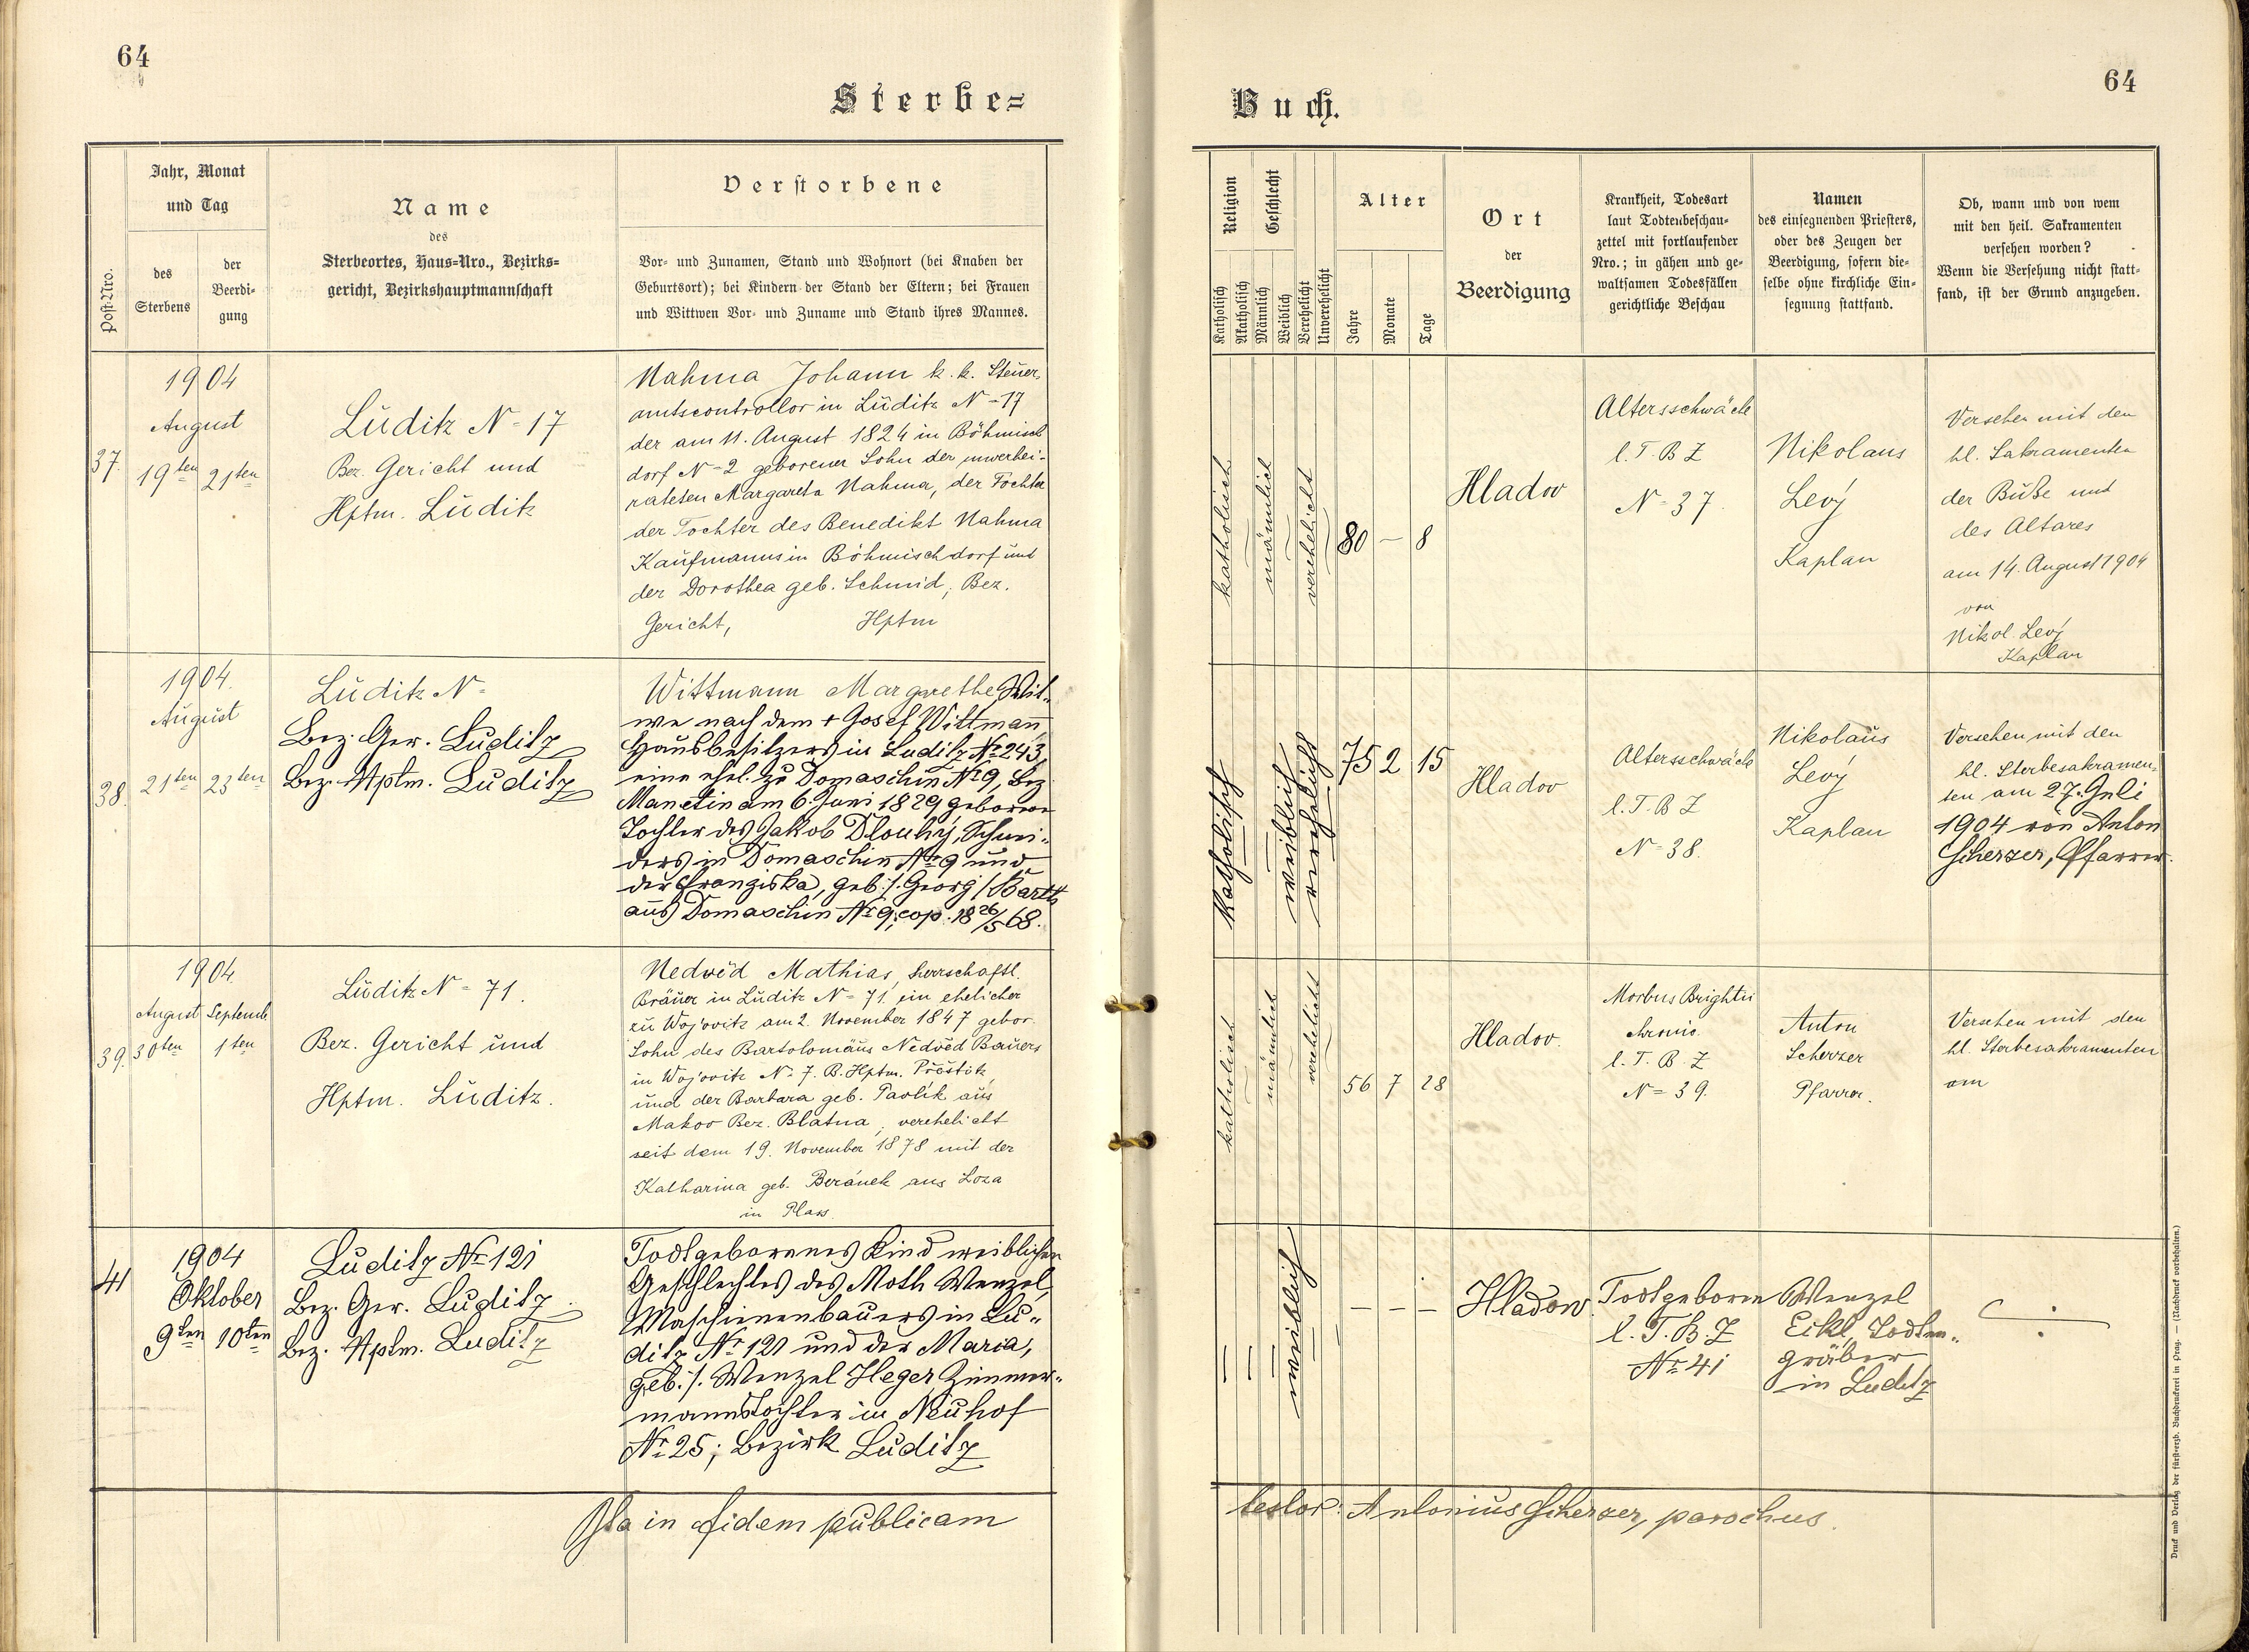 64
64
Sterbe=
Buch.
Post-Nro.
Jahr, Monat
und Tag
des
Sterbens
der
Beerdi-
gung
Name
des
Sterbeortes, Haus=Nro., Bezirks=
gericht, Bezirkshauptmannschaft
Verstorbene
Vor- und Zunamen, Stand und Wohnort (bei Knaben der
Geburtsort); bei Kindern der Stand der Eltern; bei Frauen
und Wittwen Vor- und Zuname und Stand ihres Mannes.
Religion
Katholisch
Akatholisch
Geschlecht
Männlich
Weiblich
Verehelicht
Unverehelicht
Alter
Jahre
Monate
Tage
Ort
der
Beerdigung
Krankheit, Todesart
laut Todtenbeschau-
zettel mit fortlaufender
Nro.; in gähen und ge-
waltsamen Todesfällen
gerichtliche Beschau
Namen
des einsegnenden Priesters,
oder des Zeugen der
Beerdigung, sofern die-
selbe ohne kirchliche Ein-
segnung stattfand.
Ob, wann und von wem
mit den heil. Sakramenten
versehen worden?
Wenn die Versehung nicht statt-
fand, ist der Grund anzugeben.
37.
1904
August
19ten 21ten
Luditz N=17
Bez. Gericht und
Hptm. Luditz
Nahma Johann k. k. Steuer-
amtscontrollor in Luditz N=17
der am 11. August 1824 in Böhmisch
dorf N=2 geborener Sohn der unverhei-
rateten Margareta Nahma, der Tochter
der Tochter des Benedikt Nahma
Kaufmanns in Böhmischdorf und
der Dorothea geb. Schmid, Bez.
Gericht, Hptm
katholisch
männlich
verehelicht
80 — 8
Hladov
Altersschwäche
l. T. B Z
N=37.
Nikolaus
Levý
Kaplan
Versehen mit den
hl. Sakramenten
der Buße und
des Altares
am 14. August 1904
von
Nikol. Levý
Kaplan
38.
1904.
August
21ten 23ten
Luditz N=
Bez. Ger. Luditz
Bez. Hptm. Luditz
Wittmann Margarethe Wit-
we nach dem + Josef Wittmann
Hausbesitzers in Luditz Nr 243,
eine ehel. zu Domaschin Nr 9, Bez
Manetin am 6. Juni 1829 geborene
Tochter des Jakob Dlouhý, Schnei-
ders in Domaschin Nr 9 und
der Franziska, geb. /. Georg / Bartt
aus Domaschin Nr 9; cop. 18 26/5 68.
katholisch
weiblich
verehelicht
75 2 15
Hladov
Altersschwäche
l. T. B Z
N=38.
Nikolaus
Levý
Kaplan
Versehen mit den
hl. Sterbesakramen-
ten am 27. Juli
1904 von Anton
Scherzer, Pfarrer.
39.
1904.
August Septemb
30ten 1ten
Luditz N=71.
Bez. Gericht und
Hptm. Luditz.
Nedvěd Mathias, herrschaftl.
Bräuer in Luditz N=71. ein ehelicher
zu Wojovitz am 2. November 1847 gebor.
Sohn des Bartolomäus Nedvěd Bauers
in Wojovitz N= 7. B. Hptm. Přestitz
und der Barbara geb. Pavlík aus
Makov Bez. Blatna, verehelicht
seit dem 19. November 1878 mit der
Katharina geb. Beránek aus Loza
in Plass.
katholisch
männlich
verehelicht
56 7 28
Hladov.
Morbus Brightii
chronic.
l. T. B. Z
N=39.
Anton
Scherzer
Pfarrer.
Versehen mit den
hl. Sterbesakramenten
am
41
1904
Oktober
9ten 10ten
Luditz Nr 121
Bez. Ger. Luditz
Bez. Hptm. Luditz
Todtgeborenes Kind weiblichen
Geschlechtes des Moth Wenzel,
Maschinenbauers in Lu-
ditz Nr 121 und der Maria,
geb. /. Wenzel Heger Zimmer-
mannstochter in Neuhof
Nr 25; Bezirk Luditz
weiblich
— — —
Hladow.
Todtgeboren
l. T. B. Z
Nr 41
Wenzel
Eikl, Todten-
gräber
in Luditz
Ita in fidem publicam
testor: Antonius Scherzer, parochus.
Druck und Verlag der fürst-erzb. Buchdruckerei in Prag. — (Nachdruck vorbehalten.)